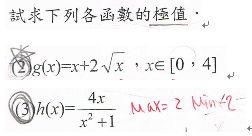 試求下列各函數的極值.
(2)g(x)=x+2√x，x∈[0，4]
(3)h(x)=4x/(x²+1) Max=2 Min=-2